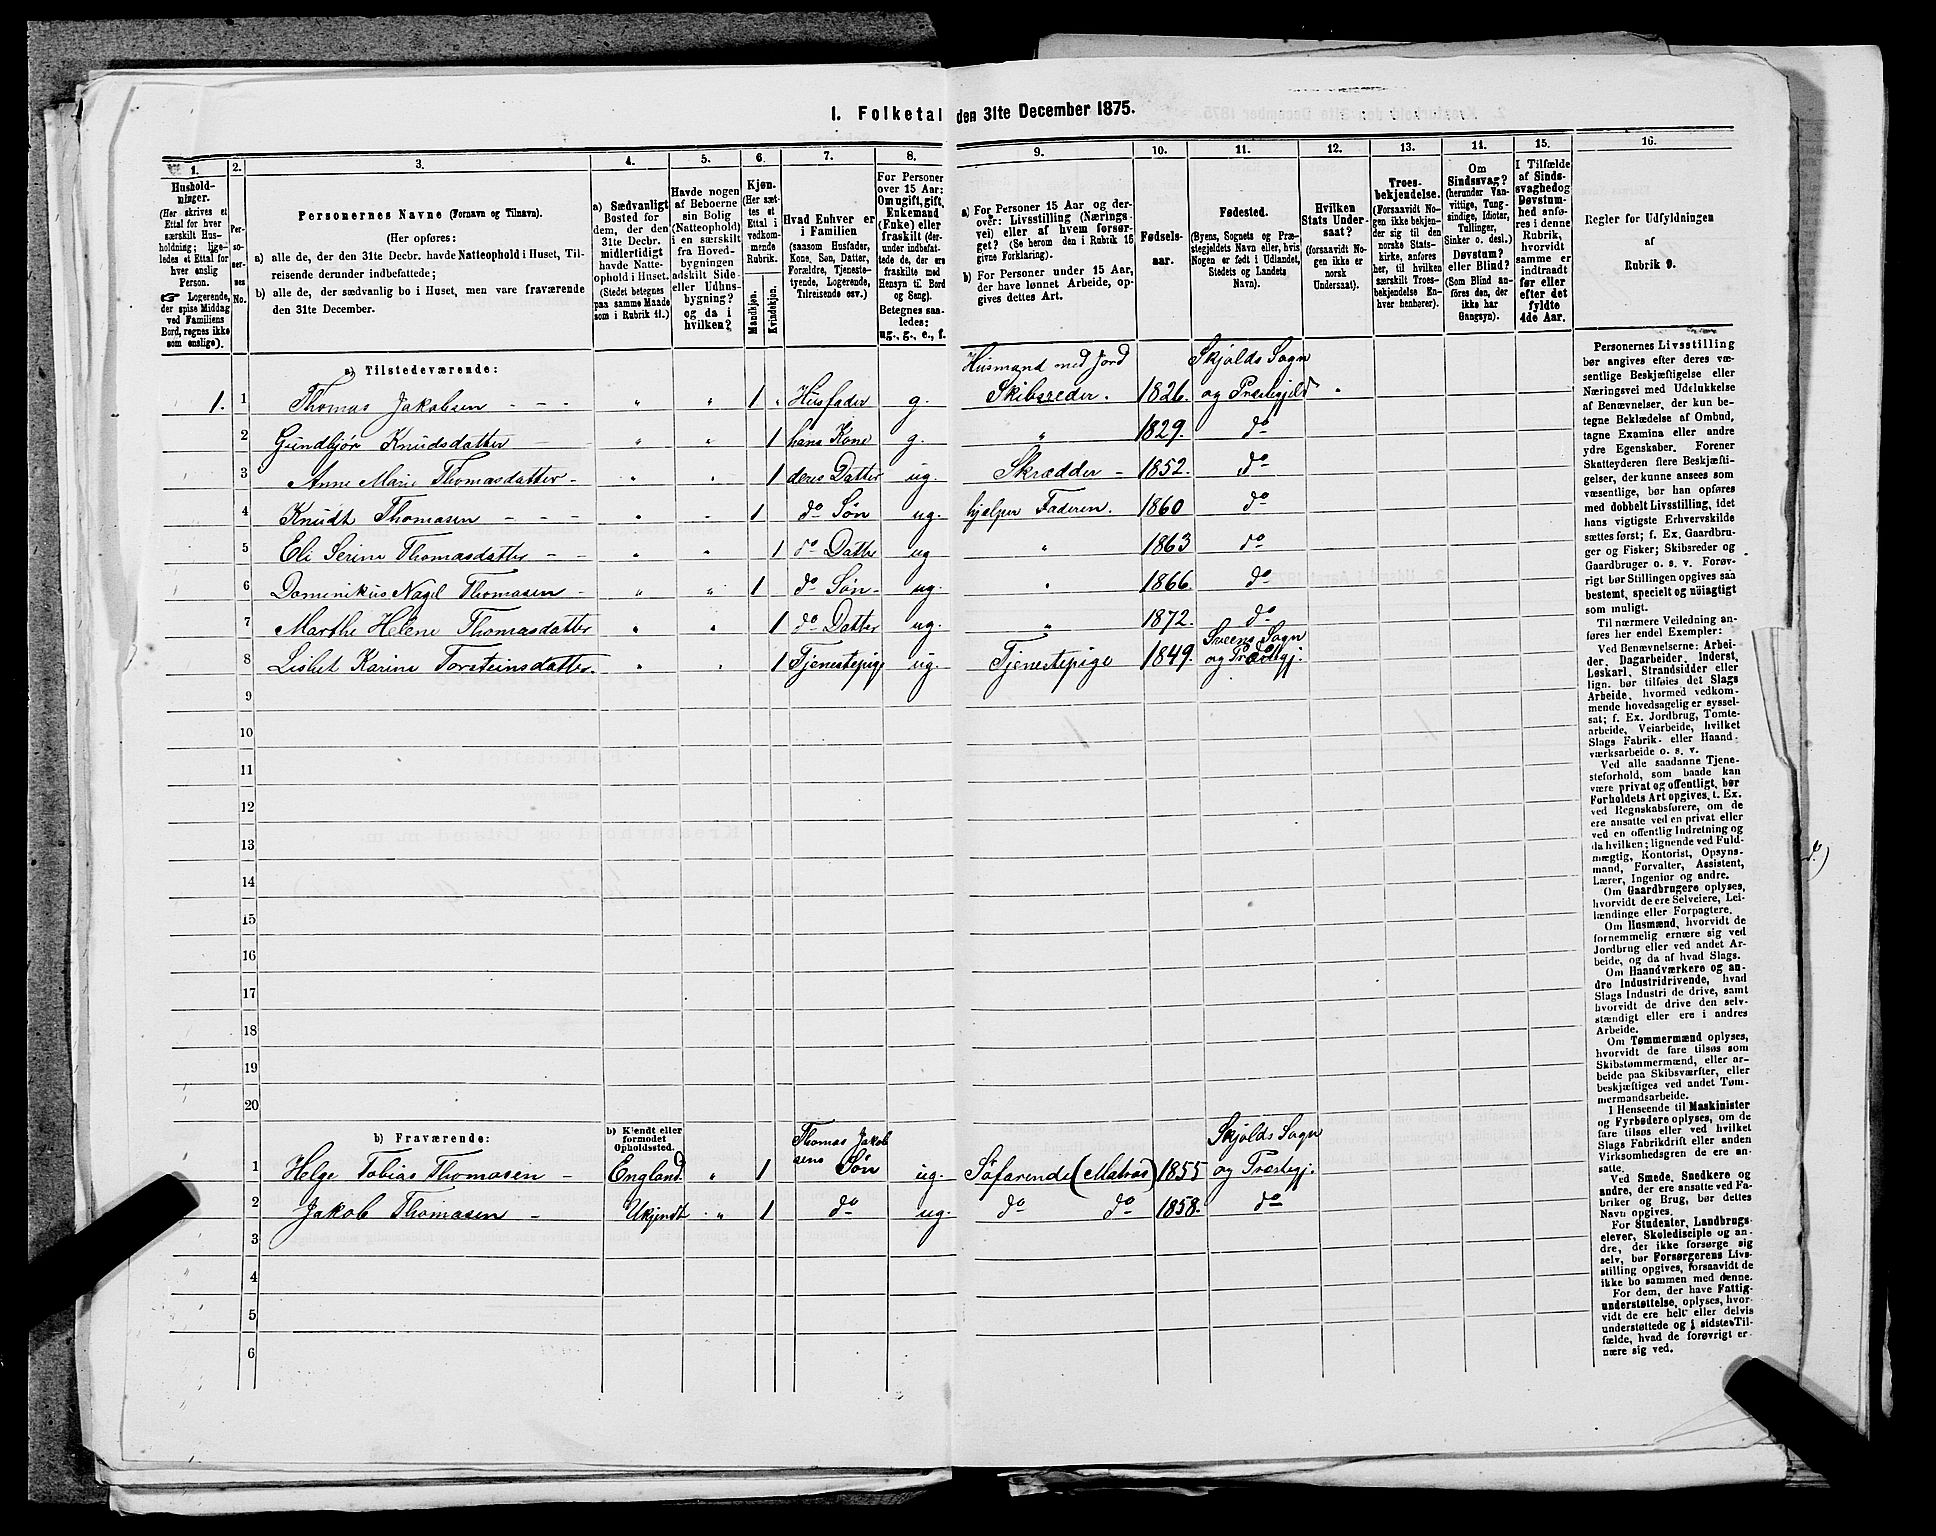 1. Folketal den 31te December 1875.
1. 2. 3. 4. 5. 6. 7. 8. 9. 10. 11. 12. 13. 14. 15. 16.
Hushold-
ninger.
(Her skrives et
Ettal for hver
særskilt Hus-
holdning; lige-
ledes et Ettal for
hver enslig
Person.
☞ Logerende,
der spise Middag
ved Familiens
Bord, regnes ikke
som enslige).
Per-
so-
ner-
nes
No.
Personernes Navne (Fornavn og Tilnavn).
(Her opføres:
a) alle de, der den 31te Decbr. havde Natteophold i Huset, Til-
reisende derunder indbefattede;
b) alle de, der sædvanlig bo i Huset, men vare fraværende
den 31te December.
a) Sædvanligt
Bosted for
dem, der den
31te Decbr.
midlertidigt
havde Natte-
ophold i Huset.
(Stedet betegnes
paa samme Maade
som i Rubrik 11.)
Havde nogen
af Beboerne
sin Bolig
(Natteophold)
i en særskilt
fra Hoved-
bygningen
adskilt Side-
eller Udhus-
bygning?
og da i
hvilken?
Kjøn.
(Her sæt-
tes et
Ettal i
vedkom-
mende
Rubrik.
Mandkjøn.
Kvindekjøn.
Hvad Enhver er
i Familien
(saasom Husfader,
Kone, Søn, Datter,
Forældre, Tjeneste-
tyende, Logerende,
Tilreisende osv.)
For Personer
over 15 Aar:
Om ugift, gift,
Enkemand
(Enke) eller
fraskilt (der-
under indbefat-
tede de, der ere
fraskilte med
Hensyn til Bord
og Seng).
Betegnes saa-
ledes:
ug., g., e., f.
a) For Personer 15 Aar og der-
over: Livsstilling (Nærings-
vei) eller af hvem forsør-
get? (Se herom den i Rubrik 16
givne Forklaring).
b) For Personer under 15 Aar,
der have lønnet Arbeide, op-
gives dettes Art.
Fødsels-
aar.
Fødested.
(Byens, Sognets og Præ-
stegjeldets Navn eller, hvis
Nogen er født i Udlandet,
Stedets og Landets
Navn).
Hvilken
Stats Under-
saat?
(forsaavidt No-
gen ikke er
norsk
Undersaat).
Troes-
bekjendelse.
(Forsaavidt No-
gen ikke bekjen-
der sig til den
norske Stats-
kirke, anføres
her, til hvilken
særskilt Troes-
bekjendelse En-
hver henhører).
Om
Sindssvag?
(herunder Van-
vittige, Tung-
sindige, Idioter,
Tullinger,
Sinker o. desl.)
Døvstum?
eller Blind?
(Som Blind an-
føres den, der
ikke har
Gangsyn).
I Tilfælde
af Sinds-
svaghed og
Døvstum-
hed anfø-
res i denne
Rubrik,
hvorvidt
samme er
indtraadt
før eller
efter det
fyldte
4de Aar.
Regler for Udfyldningen
af
Rubrik 9.
a) Tilstedeværende:
Husmand med Jord Skjolds Sogn
1. 1 Thomas Jakobsen - - - " " 1 " Husfader g. Skibsreder. 1826. og Præstegjeld
2 Gundbjør Knudsdatter - " " 1 hans Kone g. " 1829. do
3 Anne Marie Thomasdatter - " " 1 deres Datter ug. Skrædder - 1852. do
4 Knudt Thomasen - - - " " 1 do Søn ug. hjelper Faderen. 1860 do
5 Eli Serine Thomasdatter - - " " 1 do Datter ug " 1863 do
6 Dominikus Nagel Thomasen - " " 1 do Søn - ug. " 1866. do
7 Marthe Helene Thomasdatter " " 1 do Datter ug. " 1872. do
Sveens Sogn
8 Lisbet Karine Torsteinsdatter. " " 1 Tjenestepige ug. Tjenestepige 1849. og Præstgj.
9
10
11
12
13
14
15
16
17
18
19
20
b) Fraværende:
b) Kjendt eller
formodet
Opholdssted.
Thomas Jakob Skjolds Sogn
1 Helge Tobias Thomasen - England " 1 sens Søn ug. Söfarende (Matros) 1855 og Præstegj.
2 Jakob Thomasen - Ukjendt " 1 do ug. do do 1858. do
3
4
5
6
Personernes Livsstilling
bør angives efter deres væ-
sentlige Beskjæftigelse eller
Næringsvei med Udelukkelse
af Benævnelser, der kun be-
tegne Beklædelse af Ombud,
tagne Examina eller andre
ydre Egenskaber. Forener
Skatteyderen flere Beskjæfti-
gelser, der kunne ansees som
væsentlige, bør han opføres
med dobbelt Livsstilling, idet
hans vigtigste Erhvervskilde
sættes først; f. Ex. Gaardbru-
ger og Fisker; Skibsreder og
Gaardbruger o. s. v. Forøv-
rigt bør Stillingen opgives saa
bestemt, specielt og nöiagtigt
som muligt.
Til nærmere Veiledning an-
føres her endel Exempler:
Ved Benævnelserne: Arbei-
der, Dagarbeider, Inderst,
Løskarl, Strandsidder eller
lign. bør tilføies det Slags
Arbeide, hvormed vedkom-
mende hovedsagelig er syssel-
sat; f. Ex. Jordbrug, Tomte-
arbeide, Veiarbeide, hvilket
Slags Fabrik- eller Haand-
værksarbeide o. s. v.
Ved alle saadanne Tjene-
steforhold, som baade kan
være privat og offentligt, bør
Forholdets Art opgives, f. Ex.
ved Regnskabsførere, om de
ere ansatte ved en privat eller
ved en offentlig Indretning og
da hvilken; lignende ved Fuld-
mægtig, Kontorist, Opsyns-
mand, Forvalter, Assistent,
Lærer, Ingeniør og andre.
Om Gaardbrugere oplyses,
hvorvidt de ere Selveiere, Lei-
lændinge eller Forpagtere.
Om Husmænd, hvorvidt de
fornemmelig ernære sig ved
Jordbrug eller ved andet Ar-
beide, og da af hvad Slags.
Om Haandværkere og an-
dre Industridrivende, hvad
Slags Industri de drive, samt
hvorvidt de drive den selv-
stændigt eller ere i andres
Arbeide.
Om Tømmermænd oplyses,
hvorvidt de fare tilsøs som
Skibstømmermænd, eller ar-
beide paa Skibsværfter, eller
beskjæftiges ved andet Tøm-
mermandsarbeide.
I Henseende til Maskinister
og Fyrbødere oplyses, om de
fare tilsøs eller ved hvilket
Slags Fabrikdrift eller anden
Virksomhedsgren de ere an-
satte.
Ved Smede, Snedkere og
andre, der ere ansatte ved Fa-
briker og Brug, bør dettes
Navn opgives.
For Studenter, Landbrugs-
elever, Skoledisciple og an-
dre, der ikke forsørge sig
selv, bør Forsørgerens Livs-
stilling opgives, forsaavidt de
ikke bo sammen med denne.
For dem, der have Fattig-
understøttelse, oplyses, hvor-
vidt de ere helt eller delvis
understøttede og i sidste Til-
fælde, hvad de forøvrigt er-
nære sig ved.